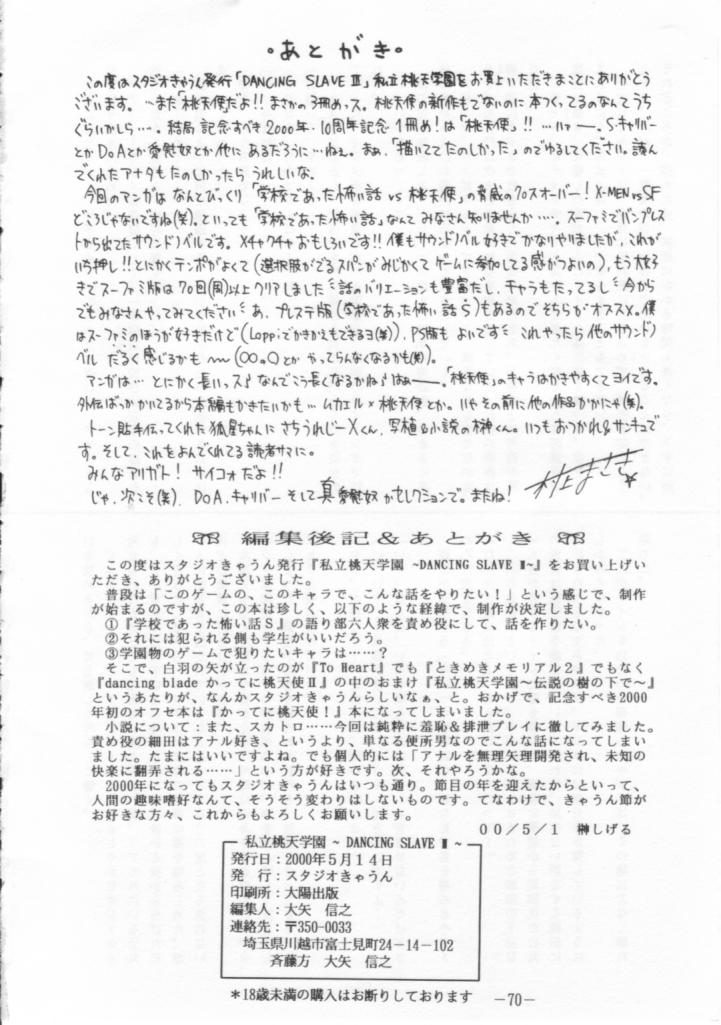 ・あとがき・
この度はスタジオきゃうん発行「DANCING SLAVE Ⅲ」私立桃天学園をお買上いただきまことにありがとう
ございます。…また「桃天使」だよ!!まさかの3冊めっス。桃天使の新作もでないのに本つくってるのなんてうち
ぐらいかしら…。結局記念すべき2000年・10周年記念1冊め!は「桃天使」!!…いやー。S.キャリバー
とかDoAとか愛慰奴とか他にあるだろうに…ねぇ。まぁ、「描いててたのしかった」のでゆるしてください。読ん
でくれたアナタもたのしかったらうれしいな。
今回のアンガはなんとびっくり「学校であった怖い話 vs 桃天使」の脅威のクロスオーバー!X-MEN vs SF
どころじゃないですね(笑)。といっても「学校であった怖い話」なんてみなさん知りませんか…。スーファミでバンプレス
トから出てたサウンドノベルです。メチャクチャおもしろいです!!僕もサウンドノベル好きでかなりやりましたが、これが
いち押し!!とにかくテンポがよくて(選択肢がでるスパンがみじかくてゲームに参加してる感がつよいの)、もう大好
きでスーファミ版は70回(周)以上クリアしました 話のバリエーションも豊富だし、キャラもたってるし 今から
でもみなさんやってみてください あ、プレステ版(学校であった怖い話S)もあるのでそちらがオススメ。僕
はスーファミのほうが好きだけど(Loppiでかきかえもできるヨ(笑))、PS版もよいです これやったら他のサウンド
ベルだるく感じるかも〜(○○。○とかやってらんなくなるかも(笑))。
マンガは…とにかく長いっス♪なんでこう長くなるかね♪はぁー。「桃天使」のキャラはかきやすくてヨイです。
外伝ばっかかいてるから本編もかきたいかも…ムカエル×桃天使とか。いやその前に他の作品かかにゃ(笑)。
トーン貼手伝ってくれた狐星ちゃんにさちうれじーXくん、写植&小説の榊くん。いつもおつかれ&サンキュで
す。そして、これをよんでくれてる読者サマに。
みんなアリガト!サイコォだよ!!
じゃ、次こそ(笑)、DoA、キャリバー そして真愛慰奴かセレクションで。またね!
村上まさき
編集後記&あとがき
この度はスタジオきゃうん発行『私立桃天学園 ~DANCING SLAVE Ⅲ~』をお買い上げい
ただき、ありがとうございました。
普段は「このゲームの、このキャラで、こんな話をやりたい！」という感じで、制作
が始まるのですが、この本は珍しく、以下のような経緯で、制作が決定しました。
①『学校であった怖い話S』の語り部六人衆を責め役にして、話を作りたい。
②それには犯られる側も学生がいいだろう。
③学園物のゲームで犯りたいキャラは……？
そこで、白羽の矢が立ったのが『To Heart』でも『ときめきメモリアル2』でもなく
『dancing blade かってに桃天使Ⅱ』の中のおまけ『私立桃天学園～伝説の樹の下で～』
というあたりが、なんかスタジオきゃうんらしいなぁ、と。おかげで、記念すべき2000
年初のオフセ本は『かってに桃天使！』本になってしまいました。
小説について：また、スカトロ……今回は純粋に羞恥&排泄プレイに徹してみました。
責め役の細田はアナル好き、というより、単なる便所男なのでこんな話になってしまい
ました。たまにはいいですよね。でも個人的には「アナルを無理矢理開発され、未知の
快楽に翻弄される……」という方が好きです。次、それやろうかな。
2000年になってもスタジオきゃうんはいつも通り。節目の年を迎えたからといって、
人間の趣味嗜好なんて、そうそう変わりはしないものです。てなわけで、きゃうん節が
お好きな方々、これからもよろしくお願いします。
００／５／１ 榊しげる
私立桃天学園 ～ DANCING SLAVE Ⅲ ～
発行日：2000年５月１４日
発 行：スタジオきゃうん
印刷所：大陽出版
編集人：大矢 信之
連絡先：〒350-0033
埼玉県川越市富士見町24－14－102
斉藤方 大矢 信之
＊18歳未満の購入はお断りしております
－70－